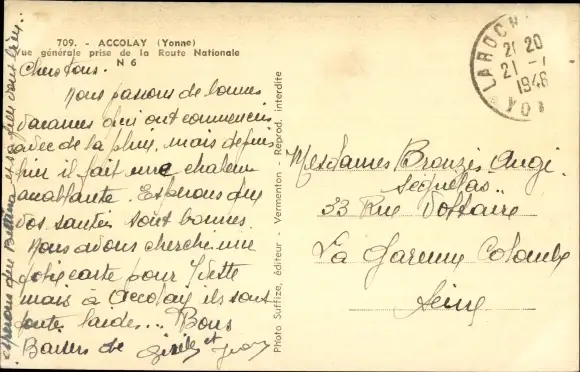 709. - ACCOLAY (Yonne)
Vue générale prise de la Route Nationale
N 6
Chers tous.
Nous passons de bonnes
vacances qui ont commencées
avec de la pluie, mais depuis
hier il fait une chaleur
accablante. Esperons que
vos santés sont bonnes
Nous avons cherché une
jolie carte pour Yvette
mais à Accolay ils sont
toutes laides... Bons
Baisers de Gisèle et
esperons que et sa fille vont bien.
Photo Suffize, éditeur - Vermenton - Reprod. interdite
LAROCH
21 20
21 -
1946
YO
Mesdames Bronzis Angi
Seguelas..
33 Rue Voltaire
La Garenne Colombe
Seine